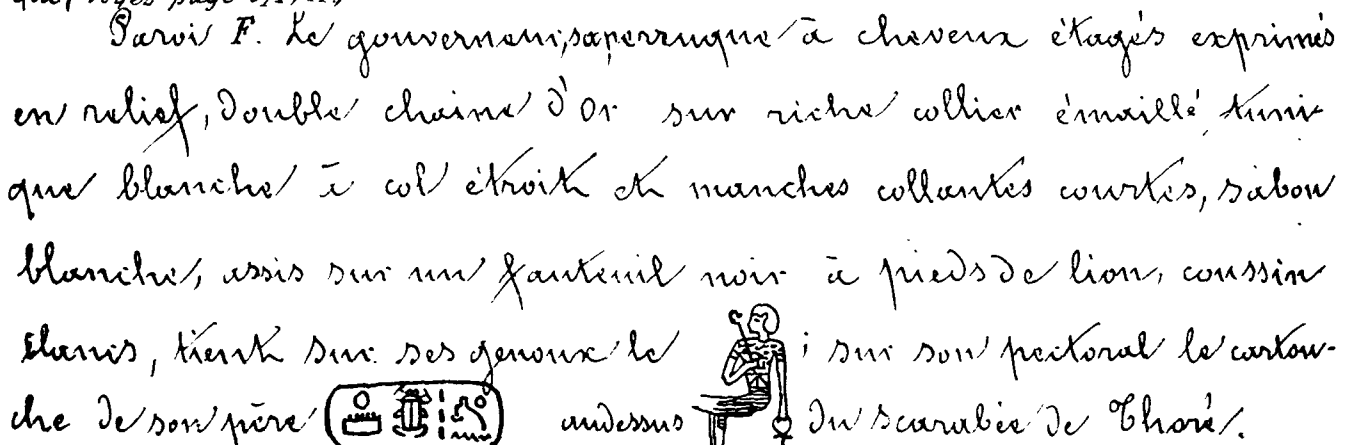 voyez page
Paroi F. Le gouverneur, sa perruque à cheveux étagés exprimés
en relief, double chaine d'or sur riche collier émaillé, tuni-
que blanche à col étroit et manches collantes courtes, sabou
blanche, assis sur un fauteuil noir à pieds de lion, coussin
blanc, tient sur ses genoux le ; sur son pectoral le cartou-
che de son père au dessus du scarabée de Thoré.